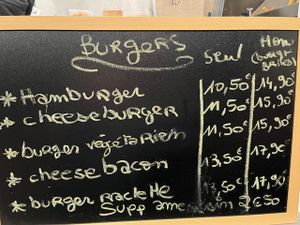 BURGERS
Seul
Menu
* Hamburger 10,50€ 14,90€
* cheeseburger 11,50€ 15,90€
* burger végétarien 11,50€ 15,90€
* cheese bacon 13,50€ 17,90€
* burger raclette 13,50€ 17,90€
Supp 2€50